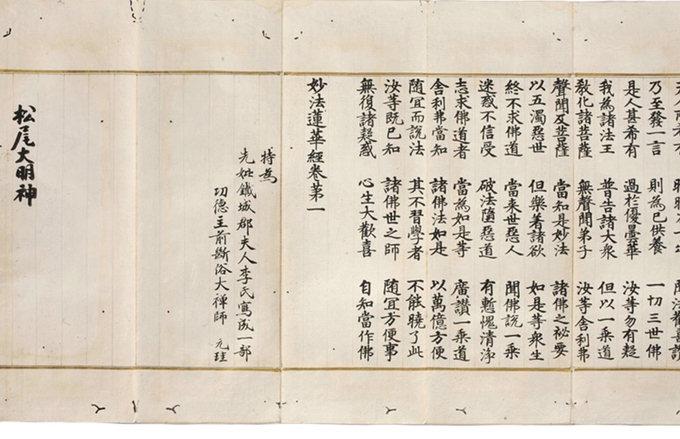 乃至發一言 則為已供養 一切三世佛
是人甚希有 過於優曇華 汝等勿有疑
我為諸法王 普告諸大衆 但以一乘道
敎化諸菩薩 無聲聞弟子 汝等舍利弗
聲聞及菩薩 當知是妙法 諸佛之秘要
以五濁惡世 但樂著諸欲 如是等衆生
終不求佛道 當來世惡人 聞佛說一乘
迷惑不信受 破法墮惡道 有慙愧清淨
志求佛道者 當為如是等 廣讚一乘道
舍利弗當知 諸佛法如是 以萬億方便
隨宜而說法 其不習學者 不能曉了此
汝等既已知 諸佛世之師 隨宜方便事
無復諸疑惑 心生大歡喜 自知當作佛
妙法蓮華經卷第一
特為
先妣鐵城郡夫人李氏寫成一部
功德主前斷俗大禪師 元珪
松尾大明神